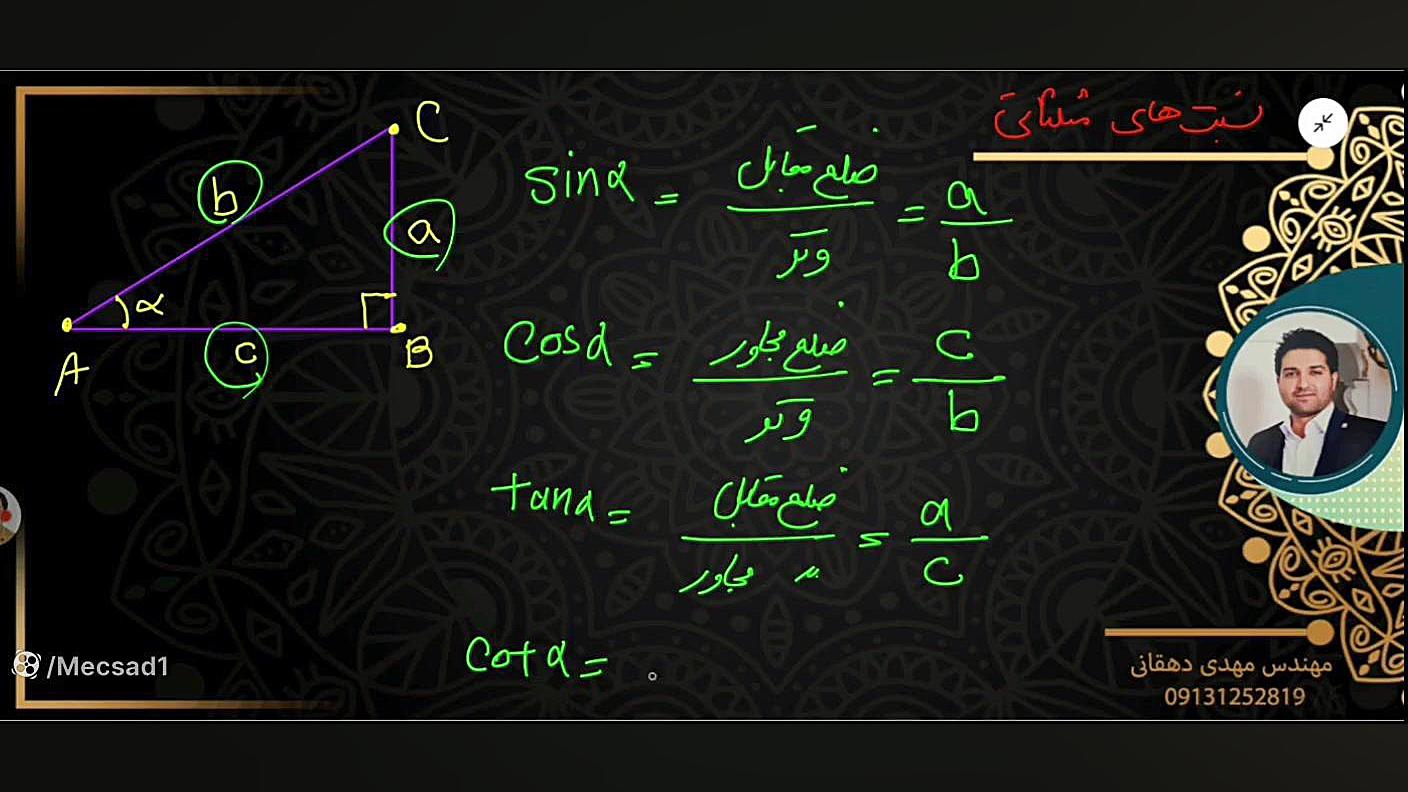 نسبت های مثلثاتی
C
b
a
α
A
c
B
sinα = ضلع مقابل / وتر = a / b
cosα = ضلع مجاور / وتر = c / b
tanα = ضلع مقابل / 〃 مجاور = a / c
cotα =
/Mecsad1
مهندس مهدی دهقانی
09131252819